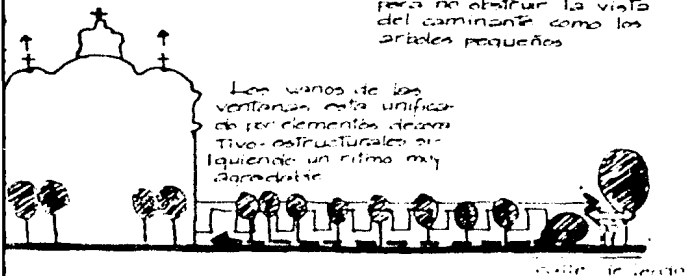 para no obstruir la vista
del caminante como los
arboles pequeños
Los vanos de las
ventanas esta unifica-
do por elementos decora
tivo-estructurales si-
guiendo un ritmo muy
agradable
calle